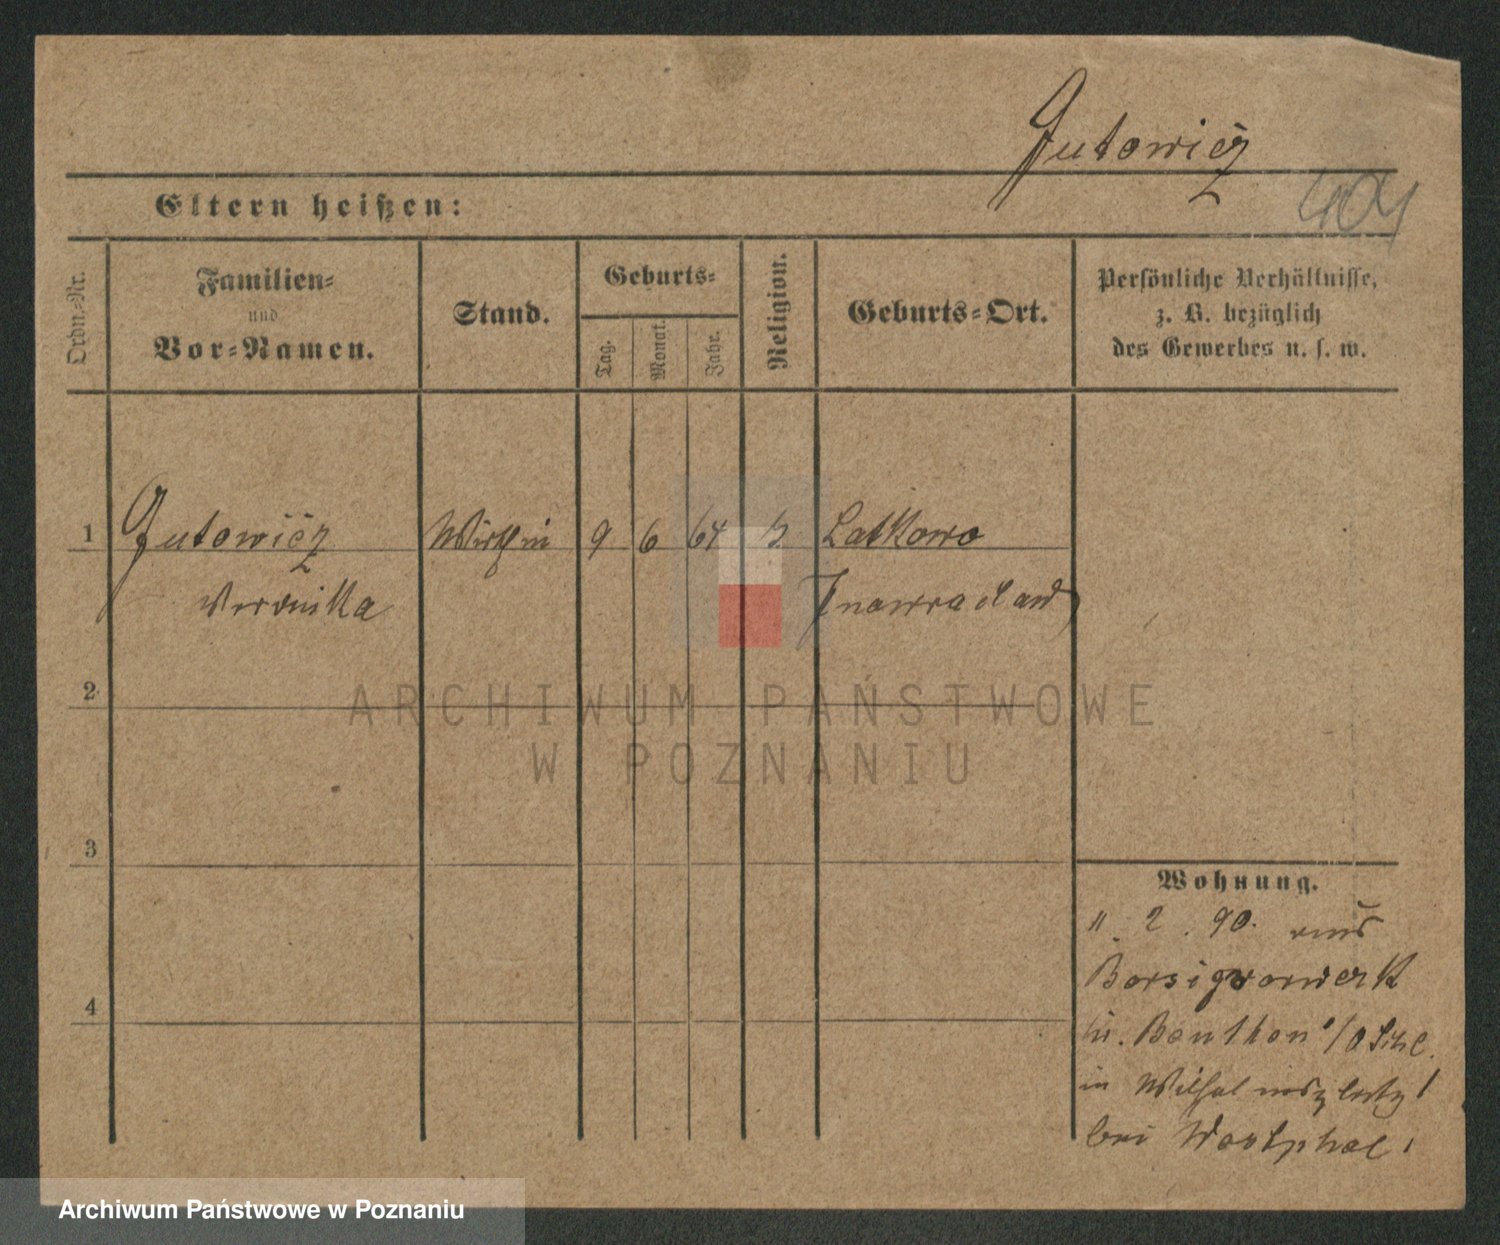 Jutowicz
404
Eltern heißen:
Ordn.-Nr.
Familien-
und
Vor-Namen.
Stand.
Geburts-
Tag.
Monat.
Jahr.
Religion.
Geburts-Ort.
Persönliche Verhältnisse,
z. B. bezüglich
des Gewerbes u. s. w.
1 Jutowicz Wirthin 9 6 64 Latkowo
Veronika Inowraclaw
2
ARCHIWUM PAŃSTWOWE
W POZNANIU
3
Wohnung.
2. 90. aus
Borsigwerk
Beuthen O/Schl.
in Wilhelmsplatz 1
bei Westphal
4
Archiwum Państwowe w Poznaniu